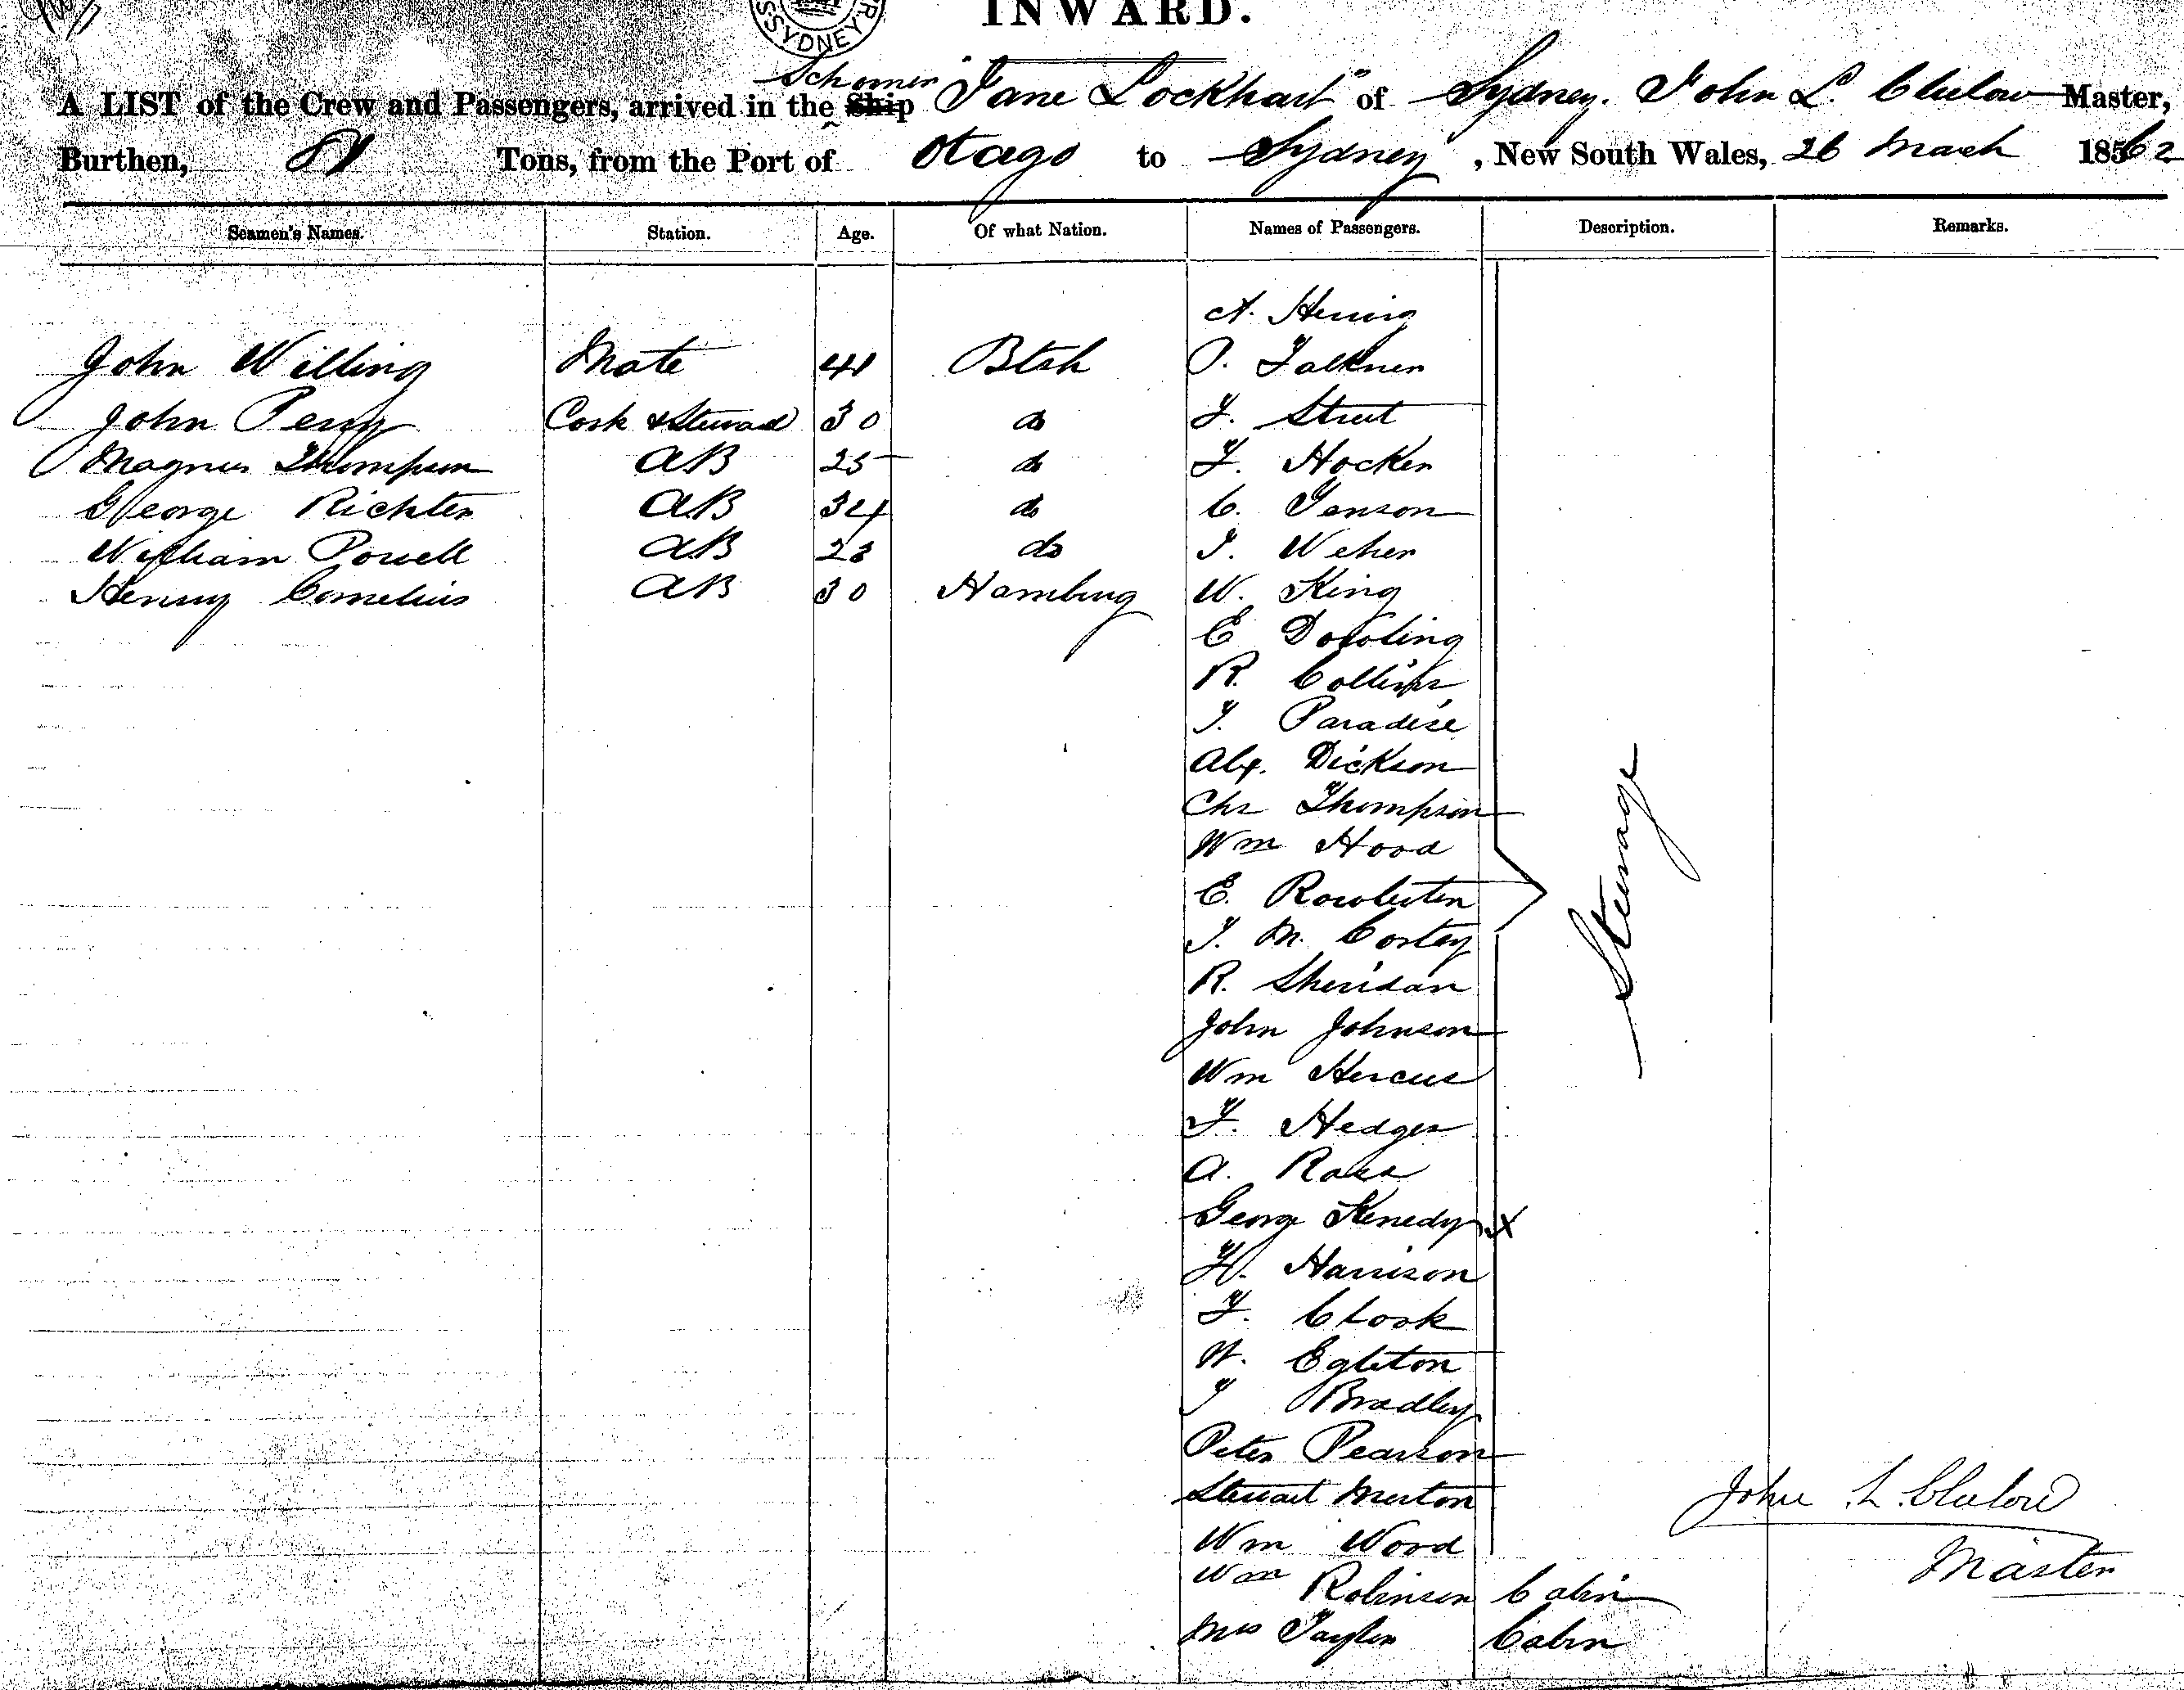 INWARD.
SYDNEY
Schooner
A LIST of the Crew and Passengers, arrived in the Ship "Jane Lockhart" of Sydney. John L. Clulow Master,
Burthen, 81 Tons, from the Port of Otago to Sydney, New South Wales, 26 March 1862
Seamen's Names. Station. Age. Of what Nation. Names of Passengers. Description. Remarks.
A. Hering
John Willing Mate 41 Btsh P. Falkner
John Perry Cook & Steward 30 do F. Street
Magnus Thompson AB 25 do F. Hocken
George Richter AB 34 do C. Janson
William Powell AB 23 do J. Weher
Henry Cornelius AB 30 Hamburg W. King
E Dowling
R. Collins
J. Paradise
Alx. Dickson
Chs Thompson
Wm Hood
E. Rowbuten
J. M. Cortey
R. Sheridan
John Johnson
Wm Hercus
F. Hedges
A. Ross
George Kenedy x
H. Harrison
F. Clook
W. Egleton
J Bradley
Peter Pearson
Stewart Murton
Wm Wood
Wm Robinson Cabin
Mrs Taylor Cabin
Steerage
John L. Clulow
Master